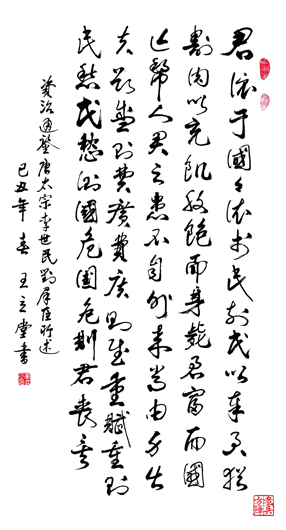 君依于國々依於民刻民以奉君猶
割肉以充飢腹飽而身斃君富而國
亡人君之患不自外來常由身出
夫欲盛則費廣費廣則賦重賦重則
民愁民愁則國危國危則君喪矣
資治通鑒唐太宗李世民對群臣所述
己丑年春王立堂書